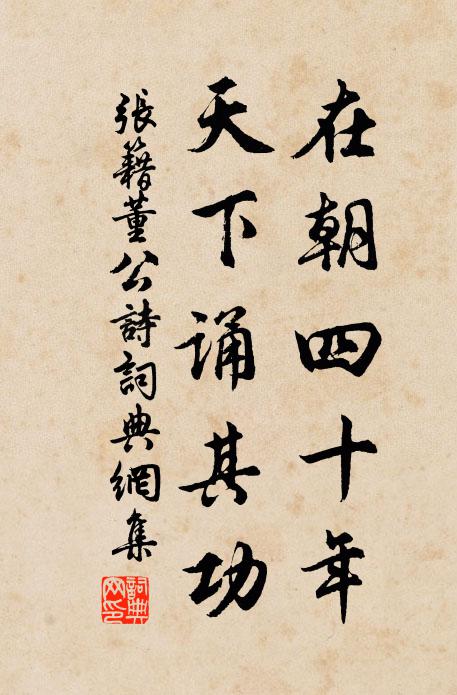 在朝四十年
天下诵其功
張籍董公詩詞典網集
詞典网印